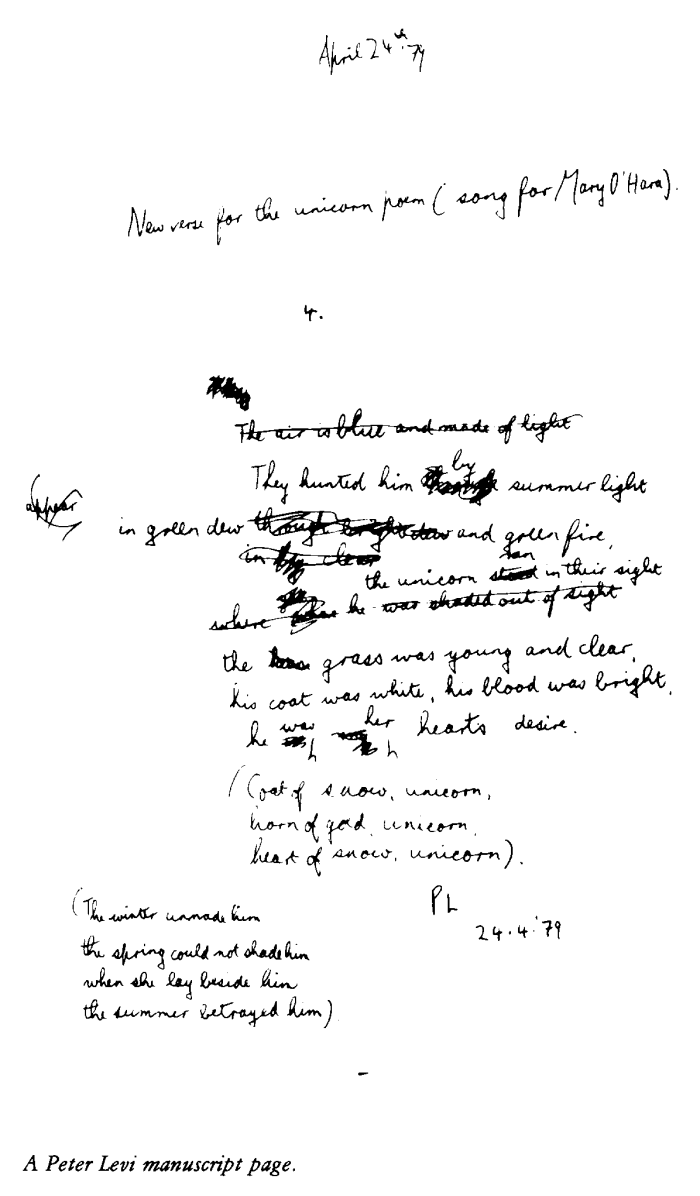 April 24th '79
New verse for the unicorn poem (song for Mary O'Hara).
4.
The air is blue and made of light
They hunted him by summer light
appear
in green dew through bright dew and green fire,
in by clear
the unicorn ran stood in their sight
where he was shaded out of sight
the grass was young and clear,
his coat was white, his blood was bright,
he was her hearts desire.
(Coat of snow, unicorn,
horn of gold, unicorn,
heart of snow, unicorn).
PL
24.4.'79
(The winter unmade him
the spring could not shade him
when she lay beside him
the summer betrayed him)
A Peter Levi manuscript page.